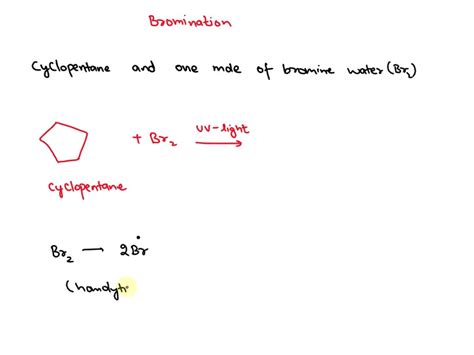 Bromination
Cyclopentane and one mole of bromine water (Br₂)
+ Br₂ UV-light
Cyclopentane
Br₂ → 2Ḃr
(homolyti